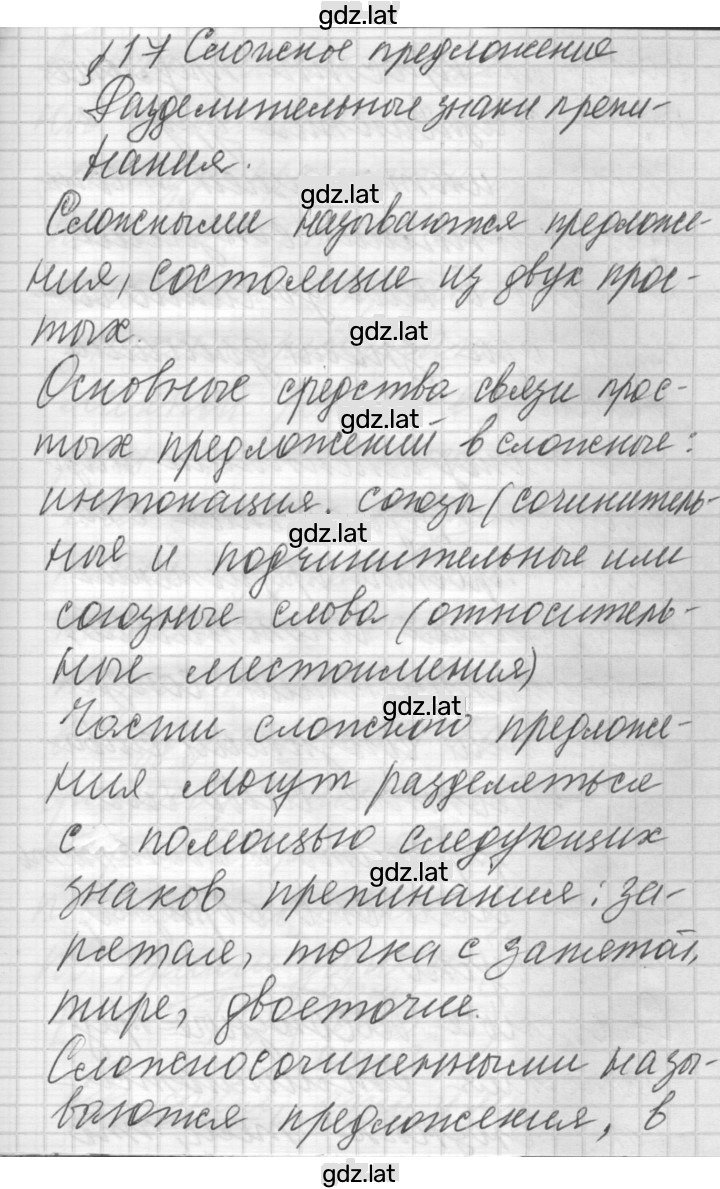 gdz.lat
§17 Сложное предложение
Разделительные знаки препи-
нания.
gdz.lat
Сложными называются предложе-
ния, состоящие из двух прос-
тых.
gdz.lat
Основные средства связи прос-
gdz.lat
тых предложений в сложные:
интонация. союзы (сочинитель-
gdz.lat
ные и подчинительные или
союзные слова (относитель-
ные местоимения)
gdz.lat
Части сложного предложе-
ния могут разделяться
с помощью следующих
gdz.lat
знаков препинания: за-
пятая, точка с запятой,
тире, двоеточие.
Сложносочиненными назы-
ваются предложения, в
gdz.lat